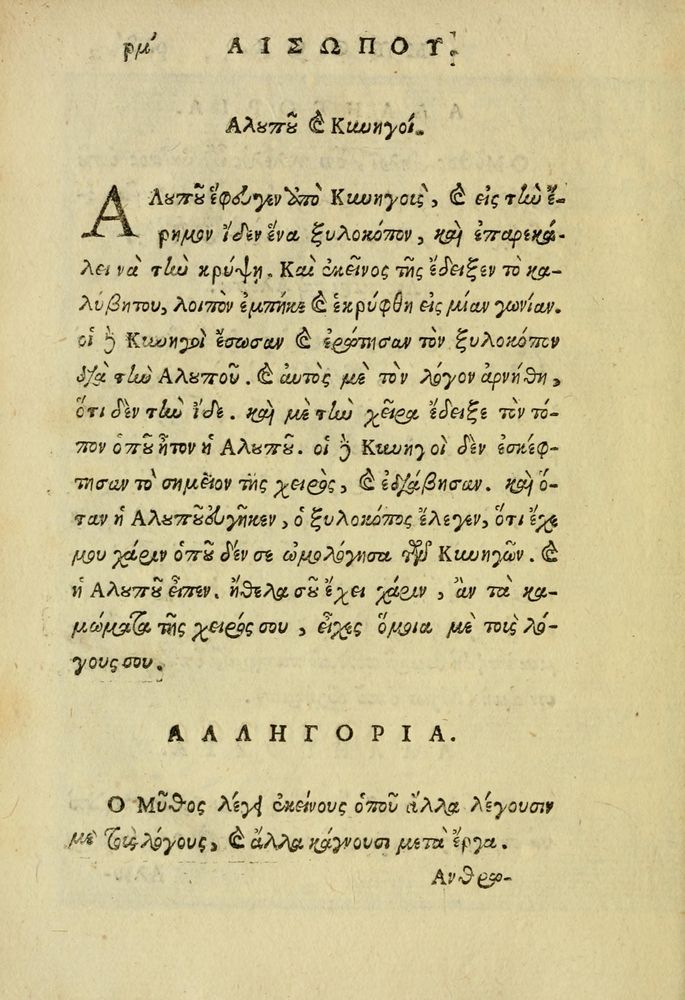 ρμ′ ΑΙΣΩΠΟΥ.
Αλουποῦ καὶ Κιυνηγοί.
ΑΛουποῦ ἔφευγεν ἀπὸ Κιυνηγοὺς, καὶ εἰς τὴν ἔ-
ρημον ἴδεν ἕνα ξυλοκόπον, καὶ ἐπαρεκά-
λει νὰ τὴν κρύψῃ. Καὶ ἐκεῖνος τῆς ἔδειξεν τὸ κα-
λύβητου, λοιπὸν ἐμπῆκε καὶ ἐκρύφθη εἰς μίαν γωνίαν.
οἱ δὲ Κιυνηγοὶ ἔσωσαν καὶ ἐρώτησαν τὸν ξυλοκόπον
διὰ τὴν Αλουποῦ. καὶ αὐτὸς μὲ τὸν λόγον ἀρνήθη,
ὅτι δὲν τὴν ἴδε. καὶ μὲ τὴν χεῖρα ἔδειξε τὸν τό-
πον ὁποῦ ἦτον ἡ Αλουποῦ. οἱ δὲ Κιυνηγοὶ δὲν ἐσκέφ-
τησαν τὸ σημεῖον τῆς χειρὸς, καὶ ἐδιάβησαν. καὶ ὅ-
ταν ἡ Αλουποῦ εὐγῆκεν, ὁ ξυλοκόπος ἔλεγεν, ὅτι ἔχε
μου χάριν ὁποῦ δέν σε ὡμολόγησα τῶν Κιυνηγῶν. καὶ
ἡ Αλουποῦ εἶπεν. ἤθελα σοῦ ἔχει χάριν, ἂν τὰ κα-
μώματα τῆς χειρός σου, εἶχες ὅμοια μὲ τοὺς λό-
γους σου.
ΑΛΛΗΓΟΡΙΑ.
Ο Μῦθος λέγει ἐκείνους ὁποῦ ἄλλα λέγουσιν
μὲ τοὺς λόγους, καὶ ἄλλα κάγνουσι μετὰ ἔργα.
Ανθρω-